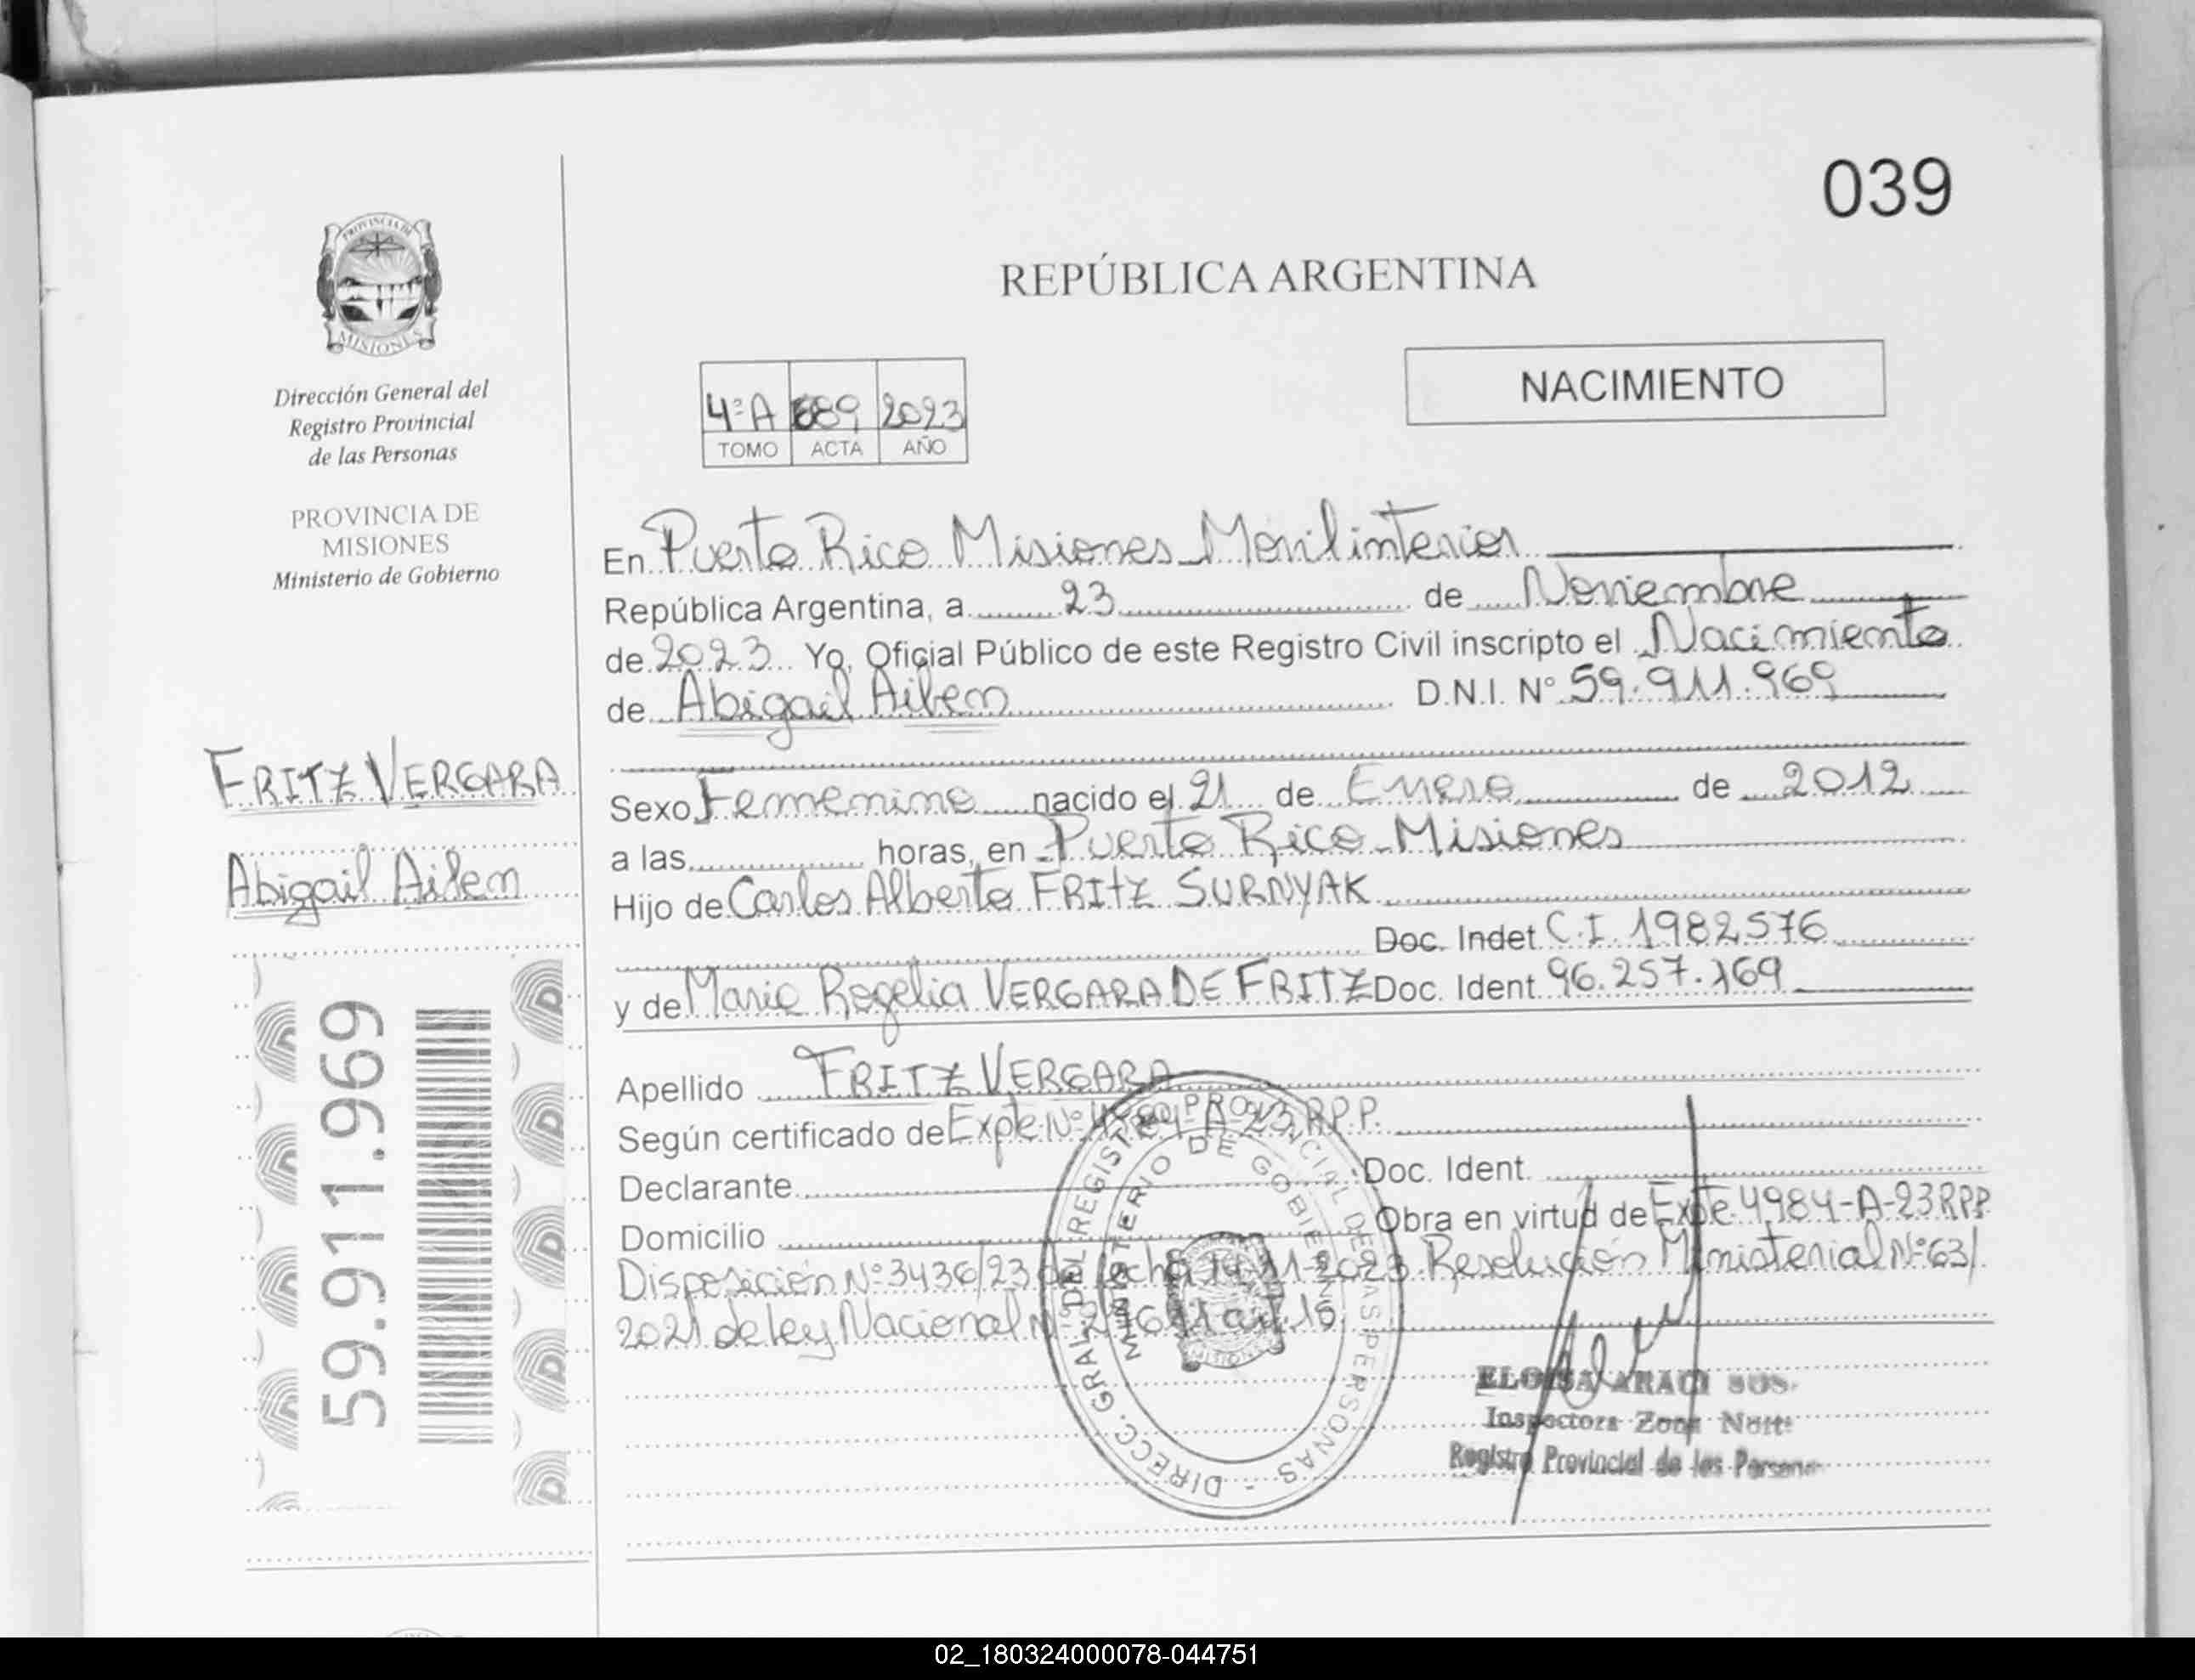 039
PROVINCIA DE
MISIONES
Dirección General del
Registro Provincial
de las Personas
PROVINCIA DE
MISIONES
Ministerio de Gobierno
FRITZ VERGARA
Abigail Ailem
59.911.969
REPÚBLICA ARGENTINA
NACIMIENTO
4ºA 689 2023
TOMO ACTA AÑO
En Puerto Rico Misiones Movil interior
República Argentina, a 23 de Noviembre
de 2023 Yo, Oficial Público de este Registro Civil inscripto el Nacimiento
de Abigail Ailem D.N.I. Nº 59.911.969
Sexo Femenino nacido el 21 de Enero de 2012
a las horas, en Puerto Rico Misiones
Hijo de Carlos Alberto FRITZ SURNYAK
Doc. Indet C.I 1982576
y de Maria Rogelia VERGARA DE FRITZ Doc. Ident 96.257.169
Apellido FRITZ VERGARA
Según certificado de Expte Nº 4984-A-23 R.P.P.
Declarante Doc. Ident.
Domicilio Obra en virtud de Expte 4984-A-23 RPP
Disposición Nº 3436/23 de fecha 14-11-2023 Resolución Ministerial Nº 63/
2021 de ley Nacional Nº 27611 art. 16
DIRECC. GRAL. DEL REGISTRO PROVINCIAL DE LAS PERSONAS
MINISTERIO DE GOBIERNO
MISIONES
Inspectora Zona Norte
Registro Provincial de las Personas
02_180324000078-044751